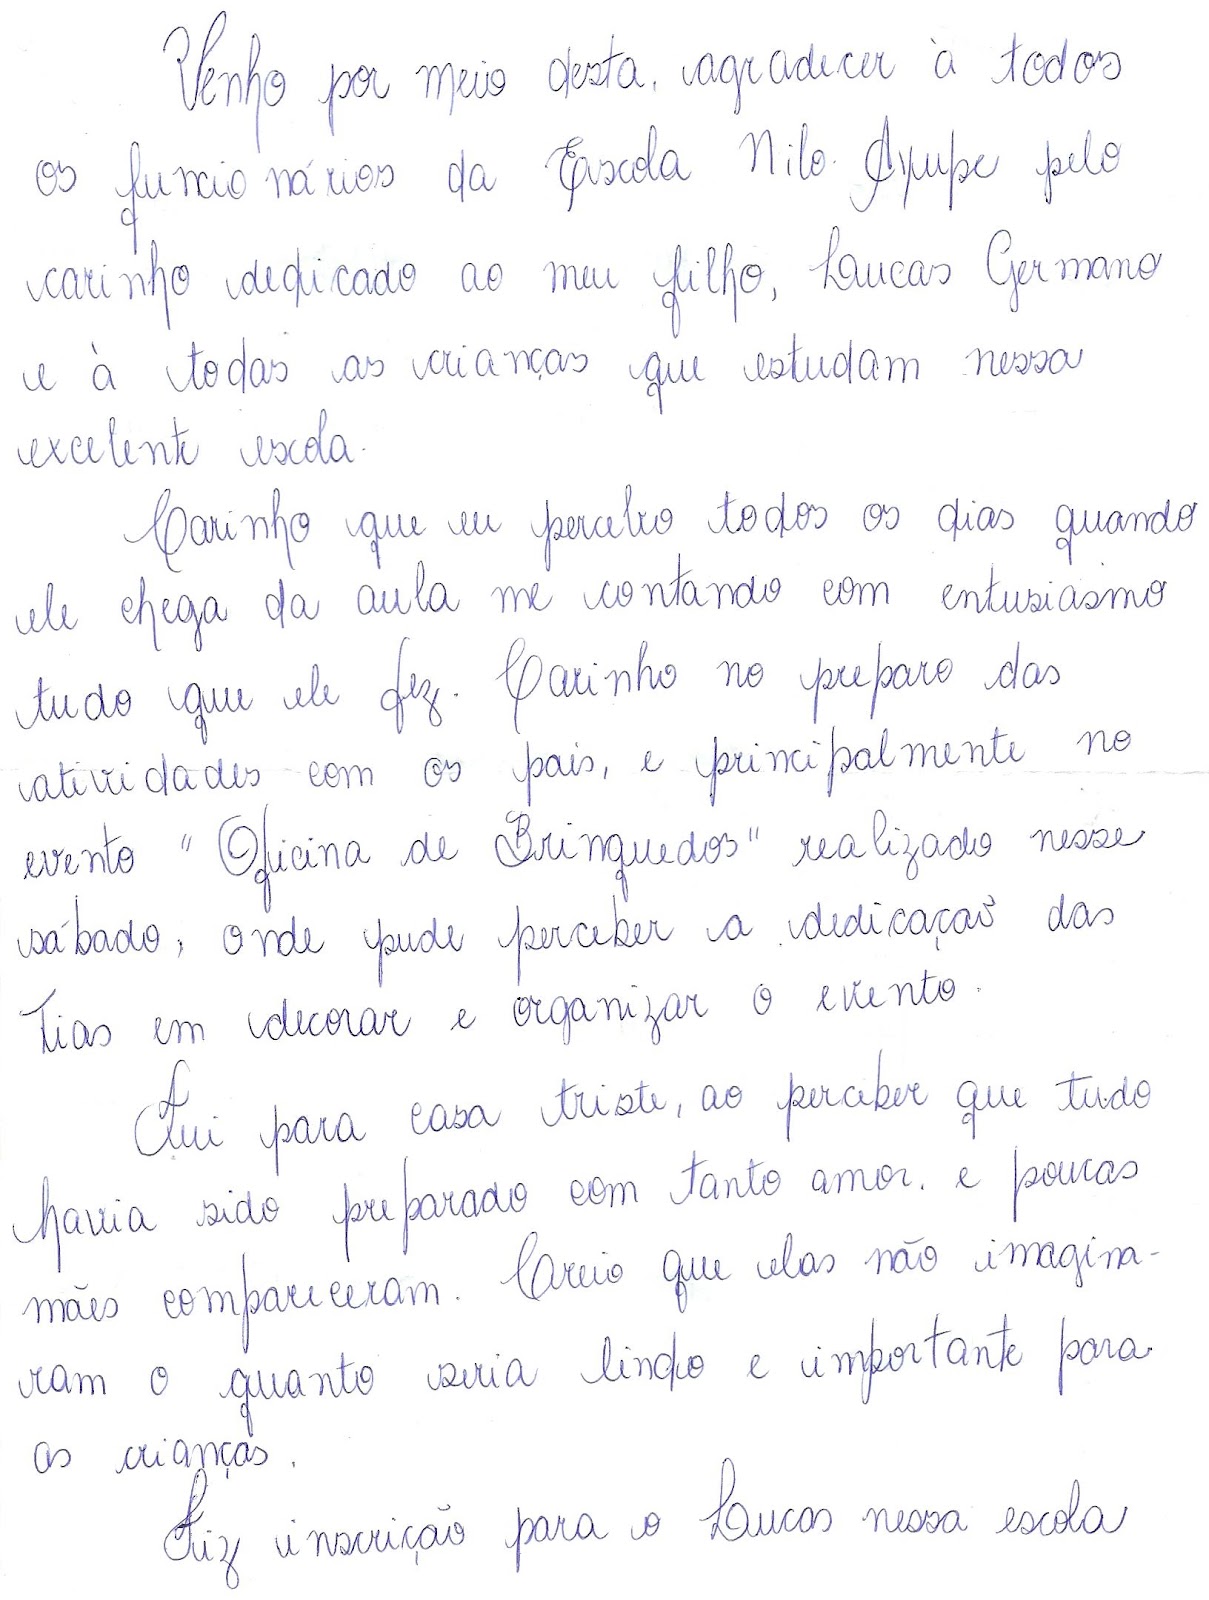 Venho por meio desta, agradecer à todos
os funcionários da Escola Nilo Ayupe pelo
carinho dedicado ao meu filho, Lucas Germano
e à todas as crianças que estudam nessa
excelente escola.
Carinho que eu percebo todos os dias quando
ele chega da aula me contando com entusiasmo
tudo que ele fez. Carinho no preparo das
atividades com os pais, e principalmente no
evento "Oficina de Brinquedos" realizado nesse
sábado, onde pude perceber a dedicação das
Tias em decorar e organizar o evento.
Fui para casa triste, ao perceber que tudo
havia sido preparado com tanto amor, e poucas
mães compareceram. Creio que elas não imagina-
ram o quanto seria lindo e importante para
as crianças.
Fiz inscrição para o Lucas nessa escola